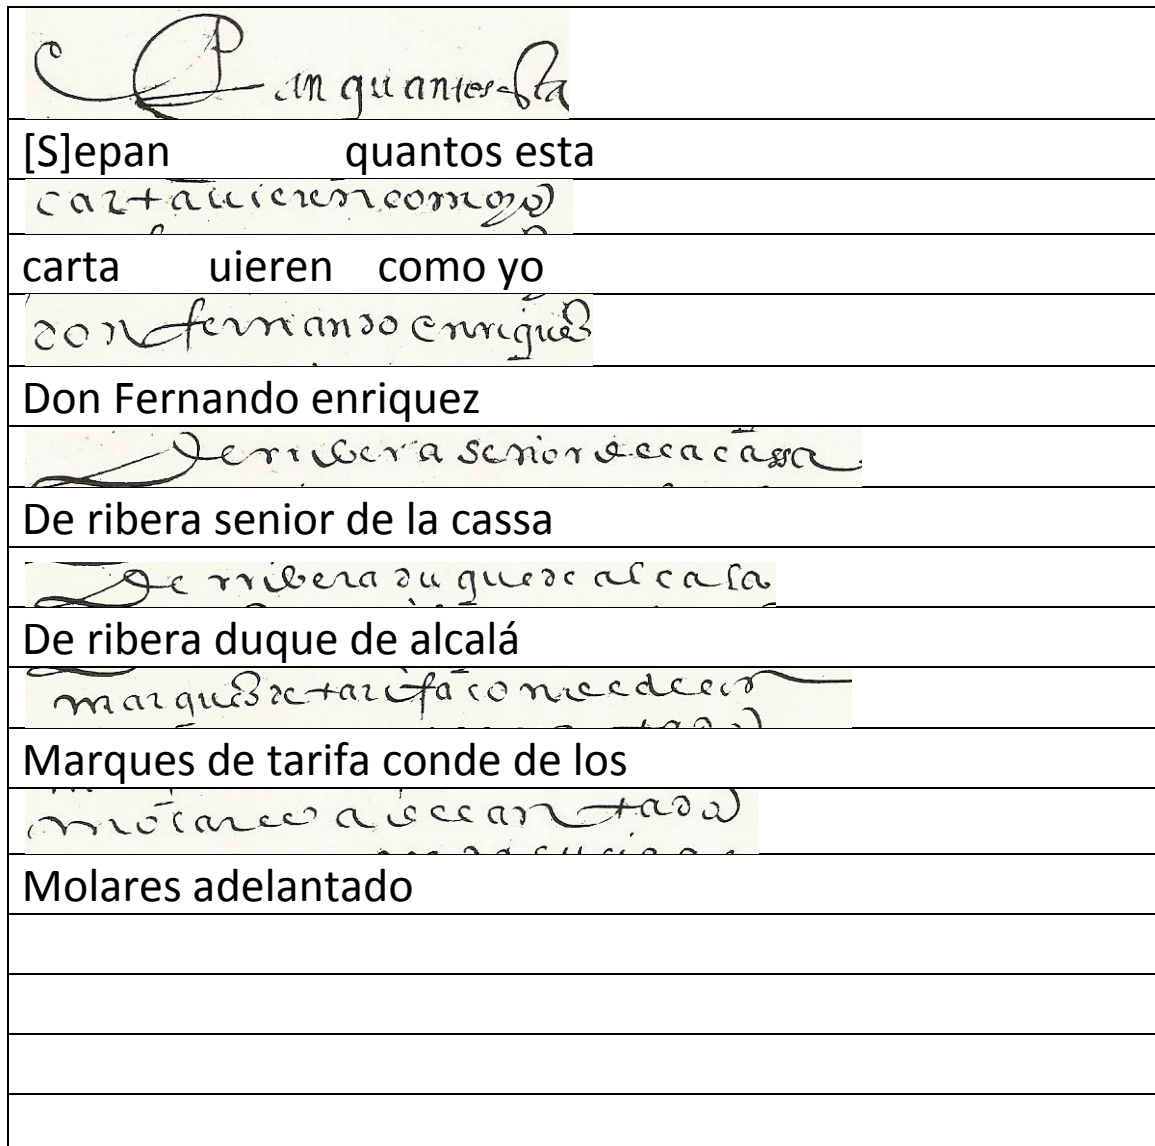 Sepan quantos esta
[S]epan quantos esta
carta uieren como yo
carta uieren como yo
don fernando enriques
Don Fernando enriquez
De rribera senior de la cassa
De ribera senior de la cassa
De rribera duque de alcala
De ribera duque de alcalá
marques de tarifa conde de los
Marques de tarifa conde de los
molares adelantado
Molares adelantado